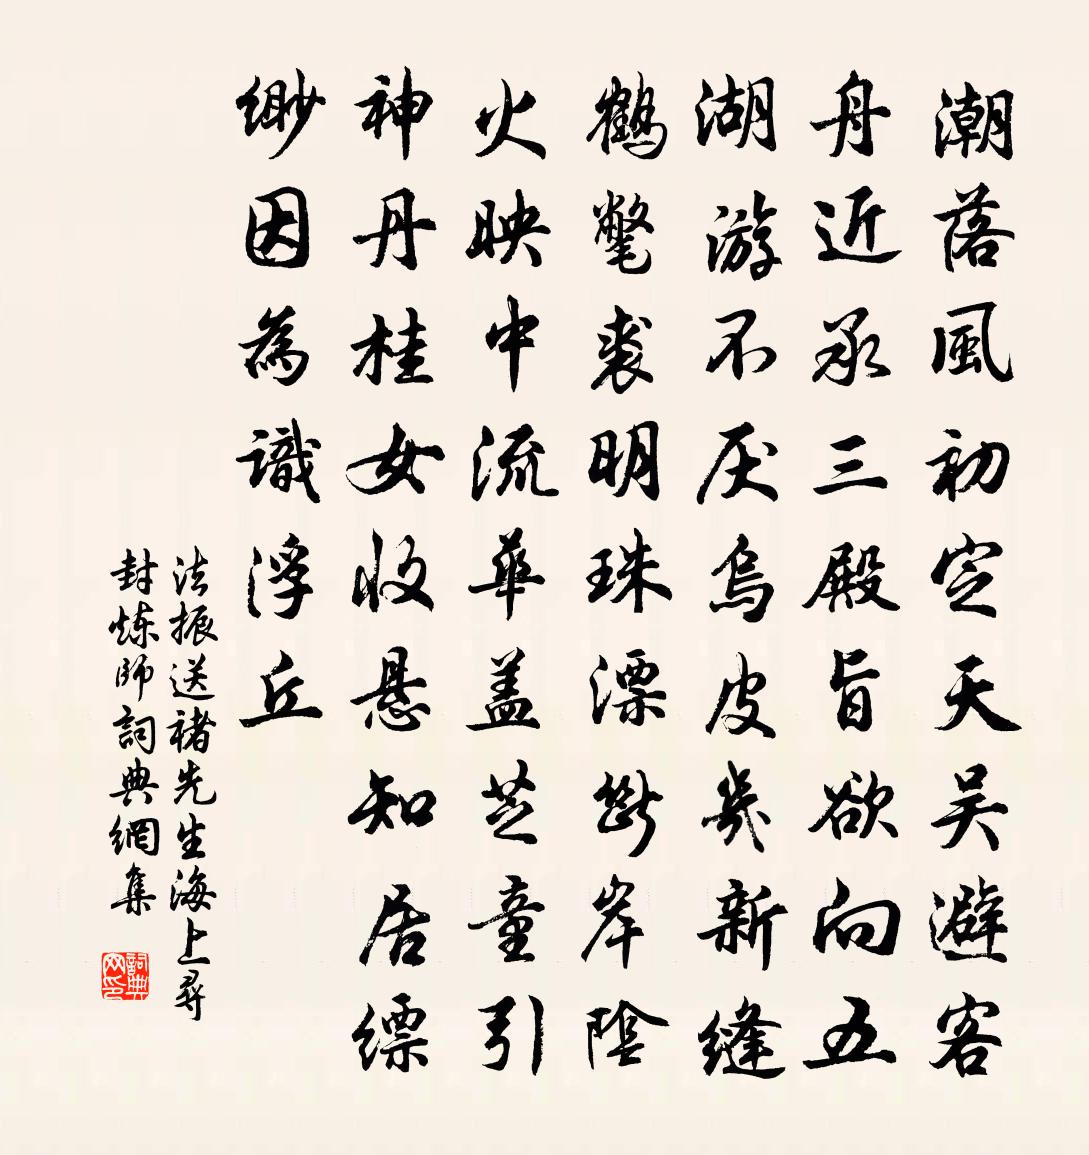 潮落風初定天吴避客
舟近承三殿旨欲向五
湖游不厌烏皮幾新縫
鶴氅裘明珠漂斷岸陰
火映中流華盖芝童引
神丹桂女收悬知居縹
缈因為識浮丘
法振送褚先生海上尋
封炼師詞典網集
詞典网印